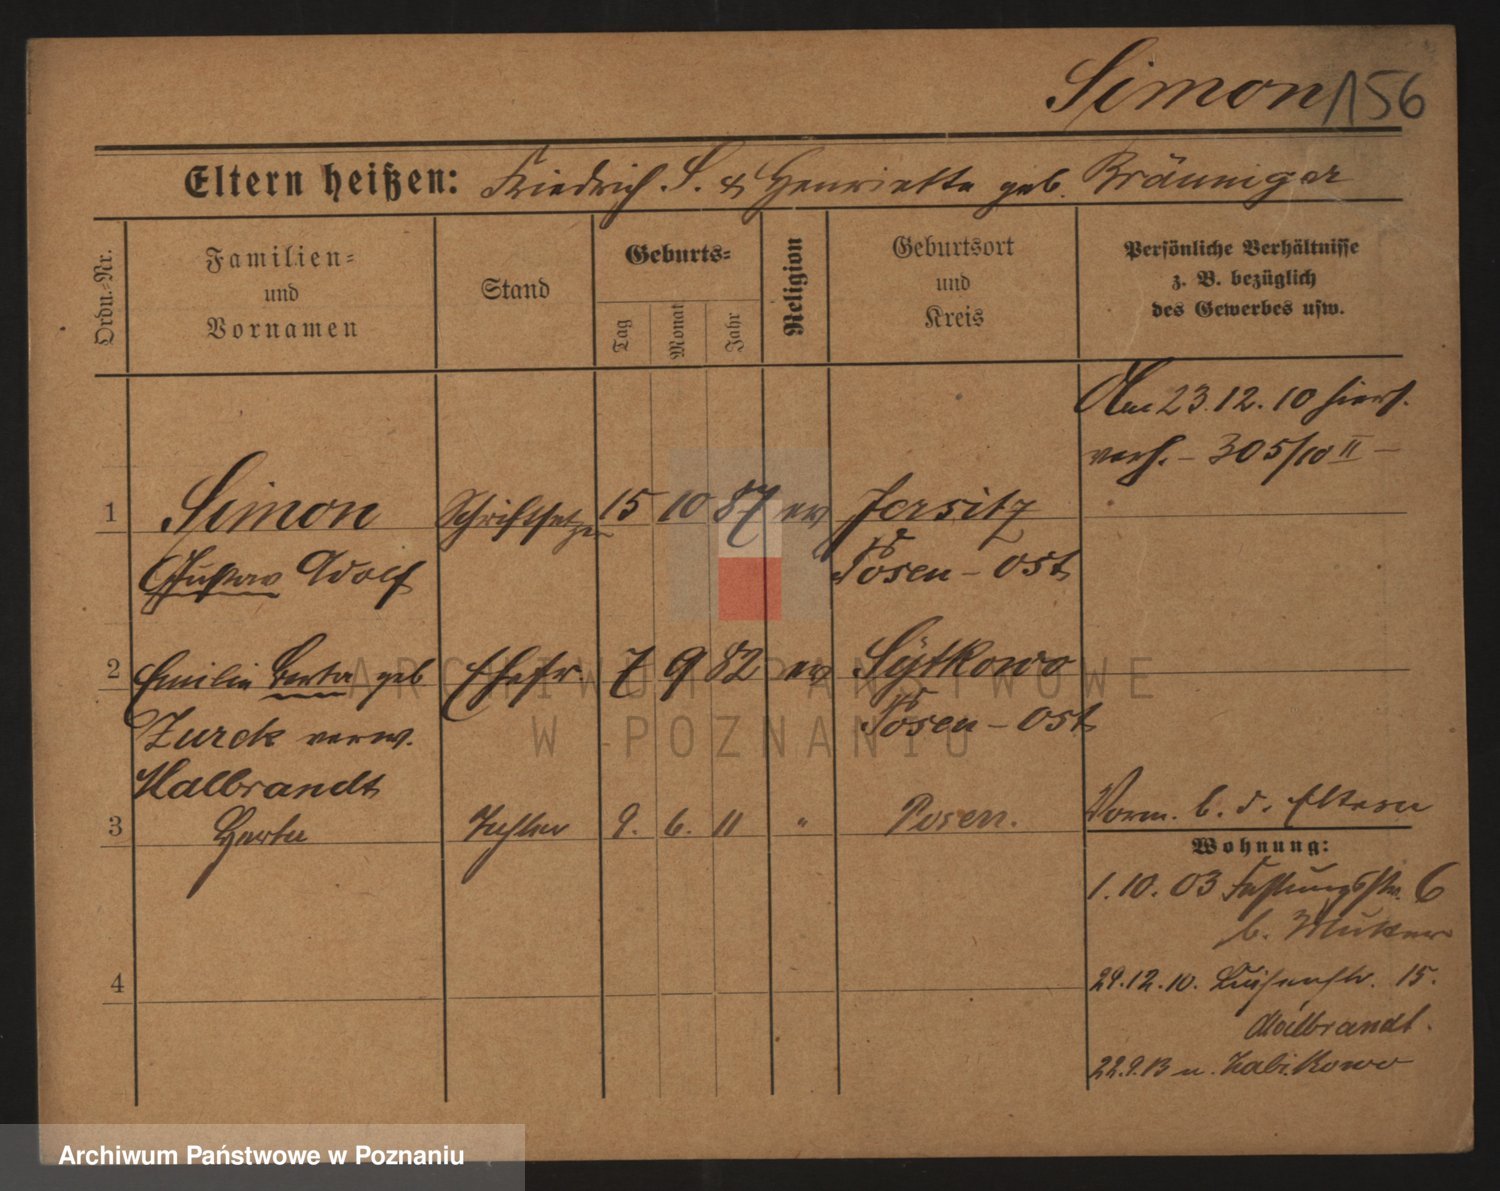 Simon 156
Eltern heißen: Friedrich S. & Henriette geb. Bräuniger
Ordn.-Nr.
Familien-
und
Vornamen
Stand
Geburts-
Tag
Monat
Jahr
Religion
Geburtsort
und
Kreis
Persönliche Verhältnisse
z. B. bezüglich
des Gewerbes usw.
Am 23.12.10 hiers.
verh. – 305/10 II –
1 Simon Schriftsetzer 15 10 87 ev Jersitz
Gustav Adolf Posen – Ost
2 Emilie Berta geb Ehefr. 7 9 82 ev Sytkowo
Zurek verw. Posen – Ost
Malbrandt
3 Herta Tochter 9. 6. 11 " Posen. Vorm. b. d. Eltern
Wohnung:
1.10.03 Festungsstr. 6
b. Mutter
4
29.12.10. Luisenstr. 15.
Malbrandt.
22.9.13 n. Zabikowo
ARCHIWUM PAŃSTWOWE
W POZNANIU
Archiwum Państwowe w Poznaniu